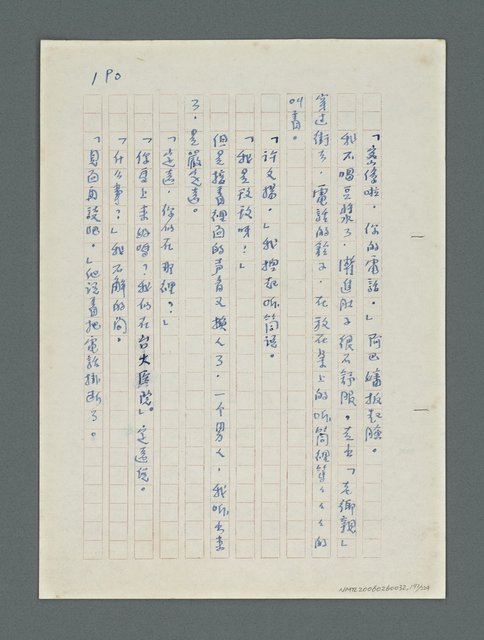 190
「客倌啦，你的電話。」阿巴嬸板起臉。
我不喝豆漿了，漲進肚子很不舒服。走出「老鄉親」
穿過街去，電話的鈴子，在放在桌上的听筒裡篤篤篤的
叫着。
「許文揚。」我擔起听筒說。
「我是玫玫呀！」
但是接着裡面的声音又換人了，一个男人，我听出來
了，是嚴定遠。
「定遠，你們在那裡？」
「你馬上來好嗎？我們在台大医院。」定遠說。
「什么事？」我不解的问。
「見面再說吧。」他說着把電話掛断了。
NMTL20060260032_191/224